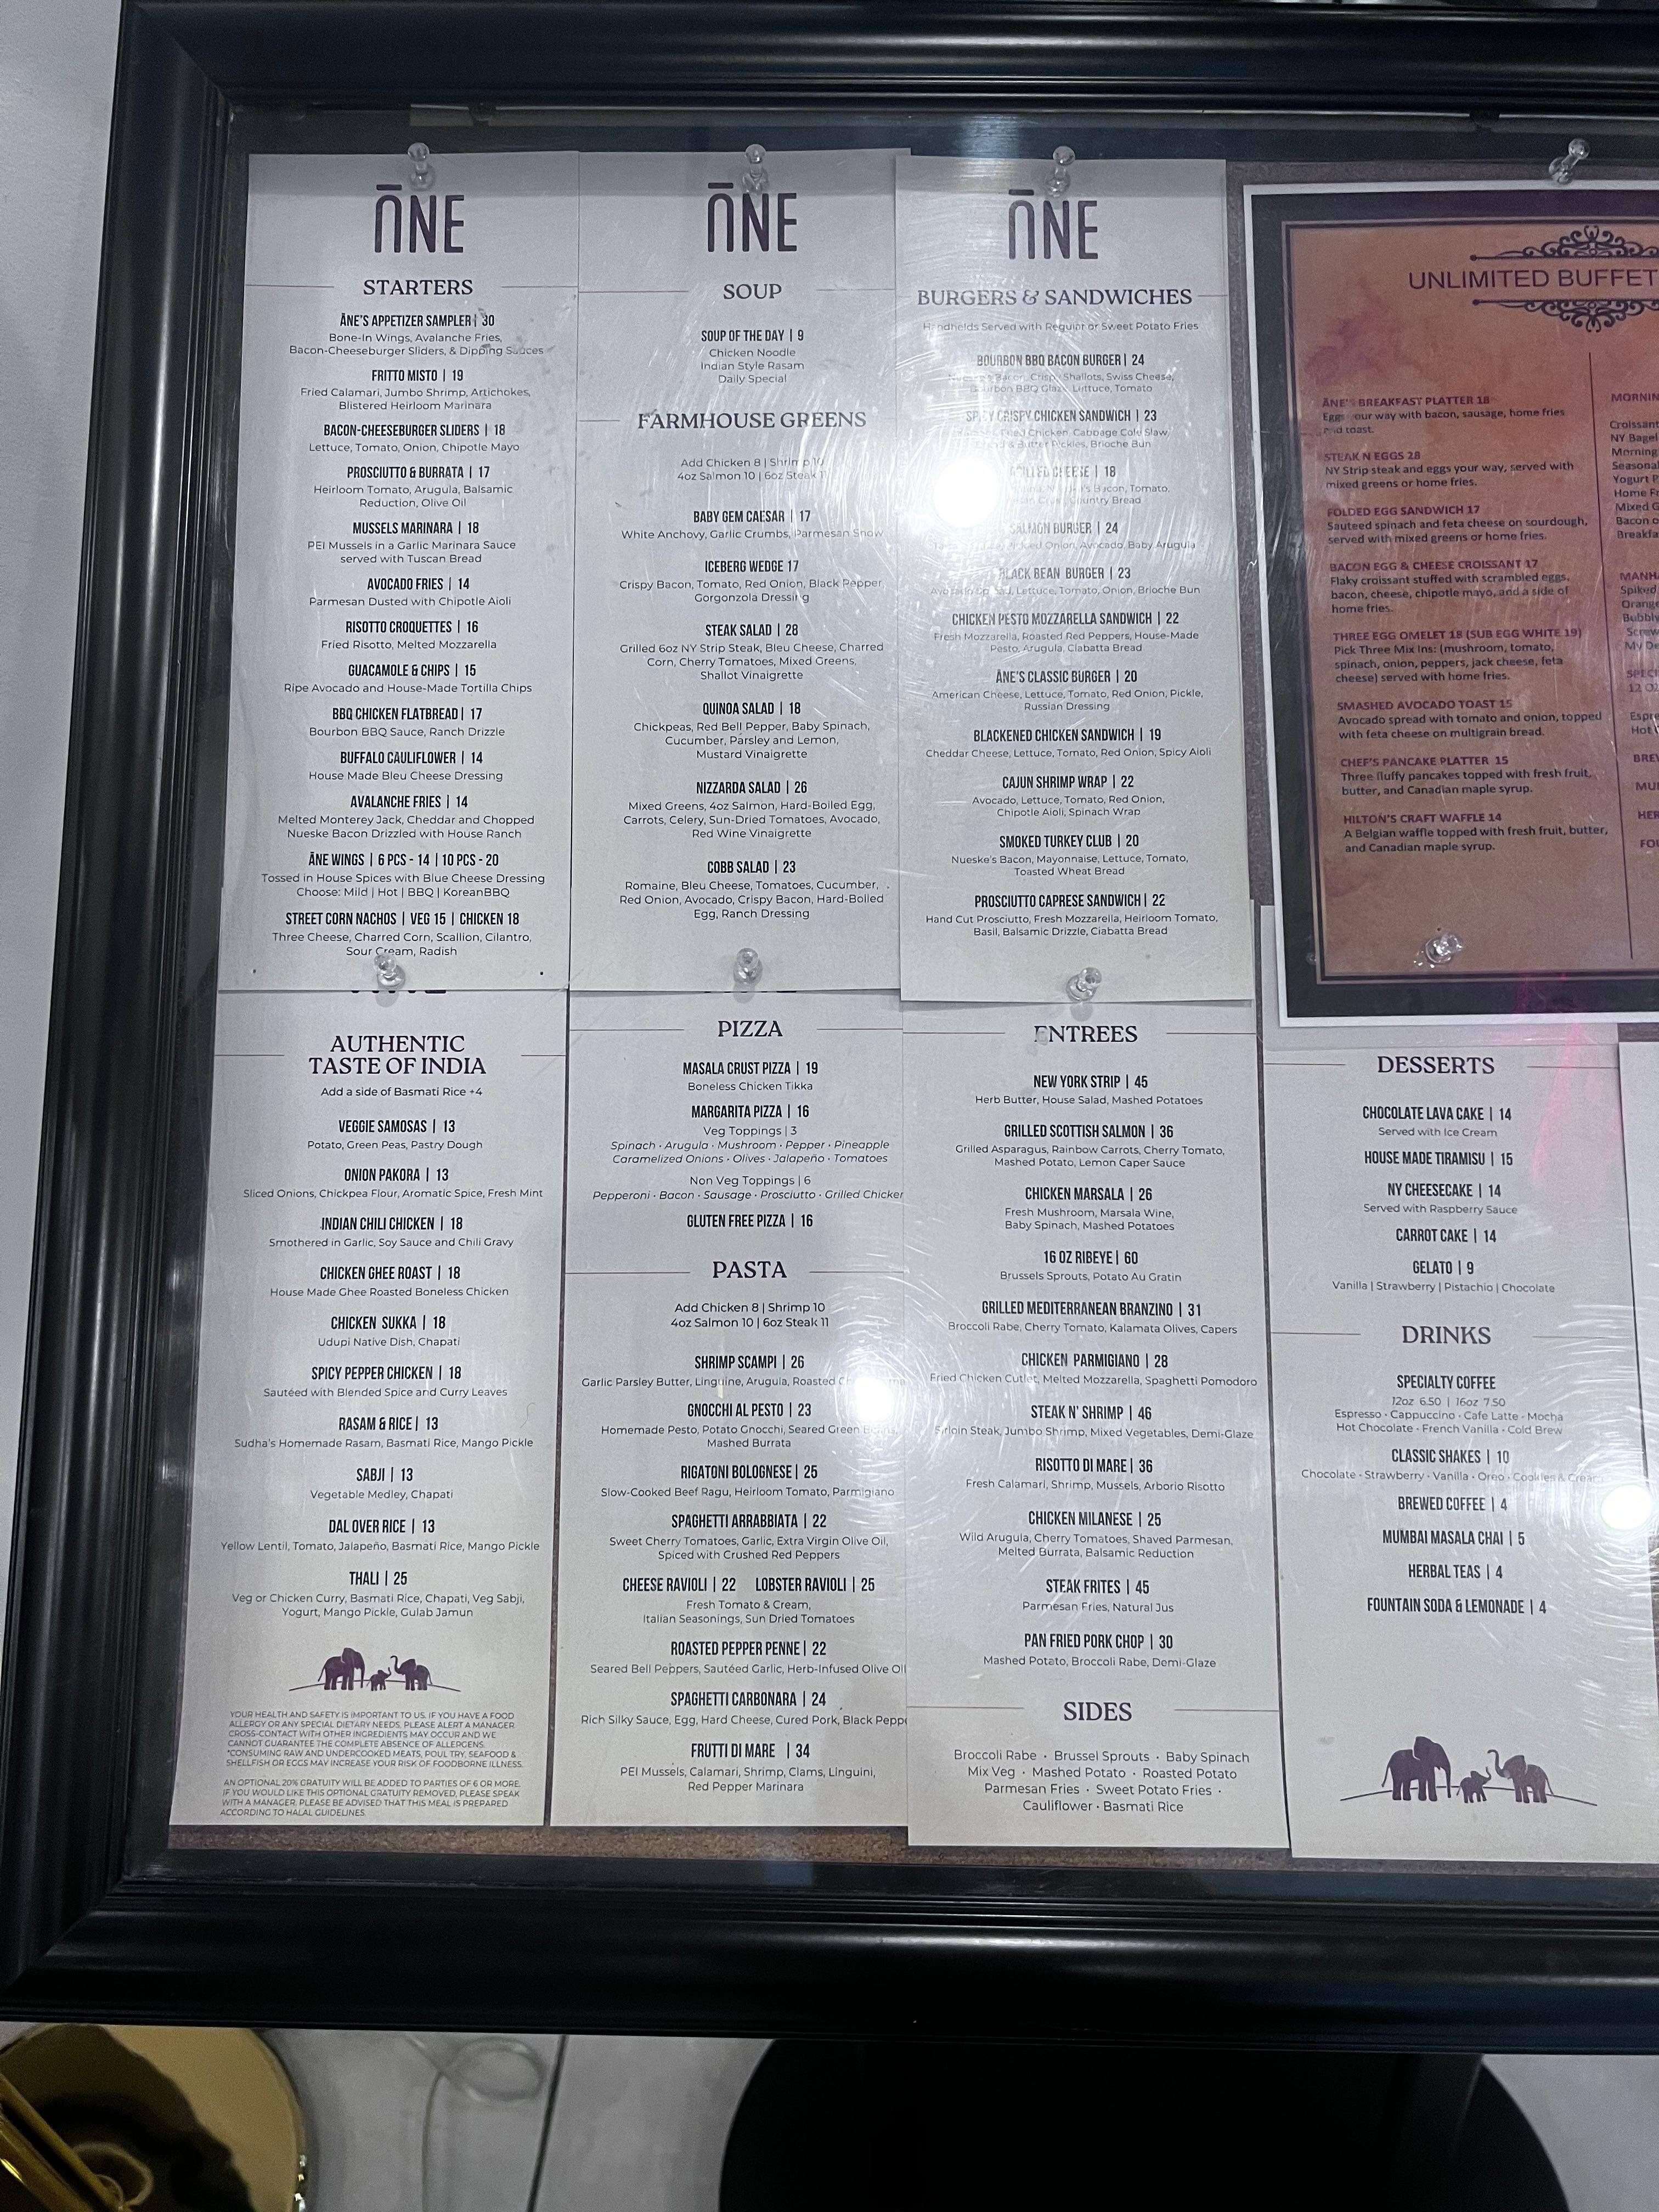 ĀNE
STARTERS
ĀNE'S APPETIZER SAMPLER | 30
Bone-In Wings, Avalanche Fries,
Bacon-Cheeseburger Sliders, & Dipping Sauces
FRITTO MISTO | 19
Fried Calamari, Jumbo Shrimp, Artichokes,
Blistered Heirloom Marinara
BACON-CHEESEBURGER SLIDERS | 18
Lettuce, Tomato, Onion, Chipotle Mayo
PROSCIUTTO & BURRATA | 17
Heirloom Tomato, Arugula, Balsamic
Reduction, Olive Oil
MUSSELS MARINARA | 18
PEI Mussels in a Garlic Marinara Sauce
served with Tuscan Bread
AVOCADO FRIES | 14
Parmesan Dusted with Chipotle Aioli
RISOTTO CROQUETTES | 16
Fried Risotto, Melted Mozzarella
GUACAMOLE & CHIPS | 15
Ripe Avocado and House-Made Tortilla Chips
BBQ CHICKEN FLATBREAD | 17
Bourbon BBQ Sauce, Ranch Drizzle
BUFFALO CAULIFLOWER | 14
House Made Bleu Cheese Dressing
AVALANCHE FRIES | 14
Melted Monterey Jack, Cheddar and Chopped
Nueske Bacon Drizzled with House Ranch
ĀNE WINGS | 6 PCS - 14 | 10 PCS - 20
Tossed in House Spices with Blue Cheese Dressing
Choose: Mild | Hot | BBQ | KoreanBBQ
STREET CORN NACHOS | VEG 15 | CHICKEN 18
Three Cheese, Charred Corn, Scallion, Cilantro,
Sour Cream, Radish
ĀNE
SOUP
SOUP OF THE DAY | 9
Chicken Noodle
Indian Style Rasam
Daily Special
FARMHOUSE GREENS
Add Chicken 8 | Shrimp 10
4oz Salmon 10 | 6oz Steak 11
BABY GEM CAESAR | 17
White Anchovy, Garlic Crumbs, Parmesan Snow
ICEBERG WEDGE 17
Crispy Bacon, Tomato, Red Onion, Black Pepper,
Gorgonzola Dressing
STEAK SALAD | 28
Grilled 6oz NY Strip Steak, Bleu Cheese, Charred
Corn, Cherry Tomatoes, Mixed Greens,
Shallot Vinaigrette
QUINOA SALAD | 18
Chickpeas, Red Bell Pepper, Baby Spinach,
Cucumber, Parsley and Lemon,
Mustard Vinaigrette
NIZZARDA SALAD | 26
Mixed Greens, 4oz Salmon, Hard-Boiled Egg,
Carrots, Celery, Sun-Dried Tomatoes, Avocado,
Red Wine Vinaigrette
COBB SALAD | 23
Romaine, Bleu Cheese, Tomatoes, Cucumber,
Red Onion, Avocado, Crispy Bacon, Hard-Boiled
Egg, Ranch Dressing
ĀNE
BURGERS & SANDWICHES
Handhelds Served with Regular or Sweet Potato Fries
BOURBON BBQ BACON BURGER | 24
Bacon, Crispy Shallots, Swiss Cheese,
Bourbon BBQ Glaze, Lettuce, Tomato
SPICY CRISPY CHICKEN SANDWICH | 23
Fried Chicken, Cabbage Cole Slaw,
& Butter Pickles, Brioche Bun
GRILLED CHEESE | 18
Bacon, Tomato,
Country Bread
SALMON BURGER | 24
Onion, Avocado, Baby Arugula
BLACK BEAN BURGER | 23
Avocado Spread, Lettuce, Tomato, Onion, Brioche Bun
CHICKEN PESTO MOZZARELLA SANDWICH | 22
Fresh Mozzarella, Roasted Red Peppers, House-Made
Pesto, Arugula, Ciabatta Bread
ĀNE'S CLASSIC BURGER | 20
American Cheese, Lettuce, Tomato, Red Onion, Pickle,
Russian Dressing
BLACKENED CHICKEN SANDWICH | 19
Cheddar Cheese, Lettuce, Tomato, Red Onion, Spicy Aioli
CAJUN SHRIMP WRAP | 22
Avocado, Lettuce, Tomato, Red Onion,
Chipotle Aioli, Spinach Wrap
SMOKED TURKEY CLUB | 20
Nueske's Bacon, Mayonnaise, Lettuce, Tomato,
Toasted Wheat Bread
PROSCIUTTO CAPRESE SANDWICH | 22
Hand Cut Prosciutto, Fresh Mozzarella, Heirloom Tomato,
Basil, Balsamic Drizzle, Ciabatta Bread
UNLIMITED BUFFET
ĀNE'S BREAKFAST PLATTER 18
Eggs your way with bacon, sausage, home fries
and toast.
STEAK N EGGS 28
NY Strip steak and eggs your way, served with
mixed greens or home fries.
FOLDED EGG SANDWICH 17
Sauteed spinach and feta cheese on sourdough,
served with mixed greens or home fries.
BACON EGG & CHEESE CROISSANT 17
Flaky croissant stuffed with scrambled eggs,
bacon, cheese, chipotle mayo, and a side of
home fries.
THREE EGG OMELET 18 (SUB EGG WHITE 19)
Pick Three Mix Ins: (mushroom, tomato,
spinach, onion, peppers, jack cheese, feta
cheese) served with home fries.
SMASHED AVOCADO TOAST 15
Avocado spread with tomato and onion, topped
with feta cheese on multigrain bread.
CHEF'S PANCAKE PLATTER 15
Three fluffy pancakes topped with fresh fruit,
butter, and Canadian maple syrup.
HILTON'S CRAFT WAFFLE 14
A Belgian waffle topped with fresh fruit, butter,
and Canadian maple syrup.
MORNIN
Croissant
NY Bagel
Morning
Seasonal
Yogurt P
Home Fr
Mixed G
Bacon o
Breakfa
MANHA
Spiked
Orange
Bubbly
Screw
My De
SPECI
12 OZ
Espre
Hot
BREW
MU
HER
FOU
AUTHENTIC
TASTE OF INDIA
Add a side of Basmati Rice +4
VEGGIE SAMOSAS | 13
Potato, Green Peas, Pastry Dough
ONION PAKORA | 13
Sliced Onions, Chickpea Flour, Aromatic Spice, Fresh Mint
INDIAN CHILI CHICKEN | 18
Smothered in Garlic, Soy Sauce and Chili Gravy
CHICKEN GHEE ROAST | 18
House Made Ghee Roasted Boneless Chicken
CHICKEN SUKKA | 18
Udupi Native Dish, Chapati
SPICY PEPPER CHICKEN | 18
Sautéed with Blended Spice and Curry Leaves
RASAM & RICE | 13
Sudha's Homemade Rasam, Basmati Rice, Mango Pickle
SABJI | 13
Vegetable Medley, Chapati
DAL OVER RICE | 13
Yellow Lentil, Tomato, Jalapeño, Basmati Rice, Mango Pickle
THALI | 25
Veg or Chicken Curry, Basmati Rice, Chapati, Veg Sabji,
Yogurt, Mango Pickle, Gulab Jamun
YOUR HEALTH AND SAFETY IS IMPORTANT TO US. IF YOU HAVE A FOOD
ALLERGY OR ANY SPECIAL DIETARY NEEDS, PLEASE ALERT A MANAGER
CROSS-CONTACT WITH OTHER INGREDIENTS MAY OCCUR AND WE
CANNOT GUARANTEE THE COMPLETE ABSENCE OF ALLERGENS.
*CONSUMING RAW AND UNDERCOOKED MEATS, POULTRY, SEAFOOD &
SHELLFISH OR EGGS MAY INCREASE YOUR RISK OF FOODBORNE ILLNESS.
AN OPTIONAL 20% GRATUITY WILL BE ADDED TO PARTIES OF 6 OR MORE.
IF YOU WOULD LIKE THIS OPTIONAL GRATUITY REMOVED, PLEASE SPEAK
WITH A MANAGER. PLEASE BE ADVISED THAT THIS MEAL IS PREPARED
ACCORDING TO HALAL GUIDELINES.
PIZZA
MASALA CRUST PIZZA | 19
Boneless Chicken Tikka
MARGARITA PIZZA | 16
Veg Toppings | 3
Spinach · Arugula · Mushroom · Pepper · Pineapple
Caramelized Onions · Olives · Jalapeño · Tomatoes
Non Veg Toppings | 6
Pepperoni · Bacon · Sausage · Prosciutto · Grilled Chicken
GLUTEN FREE PIZZA | 16
PASTA
Add Chicken 8 | Shrimp 10
4oz Salmon 10 | 6oz Steak 11
SHRIMP SCAMPI | 26
Garlic Parsley Butter, Linguine, Arugula, Roasted
GNOCCHI AL PESTO | 23
Homemade Pesto, Potato Gnocchi, Seared Green
Mashed Burrata
RIGATONI BOLOGNESE | 25
Slow-Cooked Beef Ragu, Heirloom Tomato, Parmigiano
SPAGHETTI ARRABBIATA | 22
Sweet Cherry Tomatoes, Garlic, Extra Virgin Olive Oil,
Spiced with Crushed Red Peppers
CHEESE RAVIOLI | 22 LOBSTER RAVIOLI | 25
Fresh Tomato & Cream,
Italian Seasonings, Sun Dried Tomatoes
ROASTED PEPPER PENNE | 22
Seared Bell Peppers, Sautéed Garlic, Herb-Infused Olive Oil
SPAGHETTI CARBONARA | 24
Rich Silky Sauce, Egg, Hard Cheese, Cured Pork, Black Peppe
FRUTTI DI MARE | 34
PEI Mussels, Calamari, Shrimp, Clams, Linguini,
Red Pepper Marinara
ENTREES
NEW YORK STRIP | 45
Herb Butter, House Salad, Mashed Potatoes
GRILLED SCOTTISH SALMON | 36
Grilled Asparagus, Rainbow Carrots, Cherry Tomato,
Mashed Potato, Lemon Caper Sauce
CHICKEN MARSALA | 26
Fresh Mushroom, Marsala Wine,
Baby Spinach, Mashed Potatoes
16 OZ RIBEYE | 60
Brussels Sprouts, Potato Au Gratin
GRILLED MEDITERRANEAN BRANZINO | 31
Broccoli Rabe, Cherry Tomato, Kalamata Olives, Capers
CHICKEN PARMIGIANO | 28
Fried Chicken Cutlet, Melted Mozzarella, Spaghetti Pomodoro
STEAK N' SHRIMP | 46
Sirloin Steak, Jumbo Shrimp, Mixed Vegetables, Demi-Glaze
RISOTTO DI MARE | 36
Fresh Calamari, Shrimp, Mussels, Arborio Risotto
CHICKEN MILANESE | 25
Wild Arugula, Cherry Tomatoes, Shaved Parmesan,
Melted Burrata, Balsamic Reduction
STEAK FRITES | 45
Parmesan Fries, Natural Jus
PAN FRIED PORK CHOP | 30
Mashed Potato, Broccoli Rabe, Demi-Glaze
SIDES
Broccoli Rabe · Brussel Sprouts · Baby Spinach
Mix Veg · Mashed Potato · Roasted Potato
Parmesan Fries · Sweet Potato Fries ·
Cauliflower · Basmati Rice
DESSERTS
CHOCOLATE LAVA CAKE | 14
Served with Ice Cream
HOUSE MADE TIRAMISU | 15
NY CHEESECAKE | 14
Served with Raspberry Sauce
CARROT CAKE | 14
GELATO | 9
Vanilla | Strawberry | Pistachio | Chocolate
DRINKS
SPECIALTY COFFEE
12oz 6.50 | 16oz 7.50
Espresso · Cappuccino · Cafe Latte · Mocha
Hot Chocolate · French Vanilla · Cold Brew
CLASSIC SHAKES | 10
Chocolate · Strawberry · Vanilla · Oreo · Cookies & Cream
BREWED COFFEE | 4
MUMBAI MASALA CHAI | 5
HERBAL TEAS | 4
FOUNTAIN SODA & LEMONADE | 4